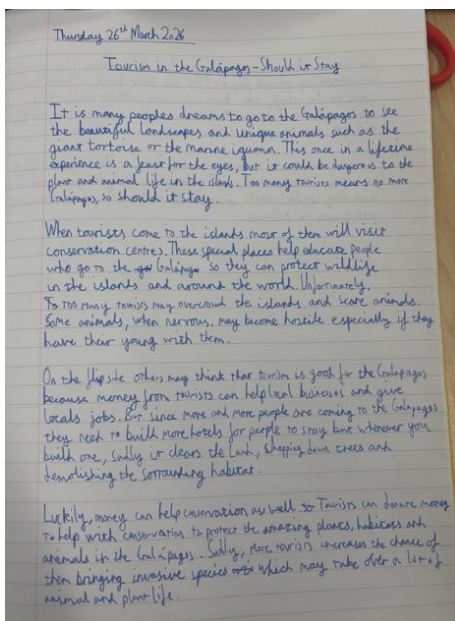 Thursday 26th March 2026
Tourism in the Galápagos - Should it Stay
It is many peoples dreams to go to the Galápagos to see
the beautiful landscapes and unique animals such as the
giant tortoise or the marine iguana. This once in a lifetime
experience is a feast for the eyes, but it could be dangerous to the
plant and animal life in the islands. Too many tourists means no more
Galápagos, so should it stay.
When tourists come to the islands most of them will visit
conservation centres. These special places help educate people
who go to the Galápagos so they can protect wildlife
in the islands and around the world. Unfortunately,
too many tourists may overcrowd the islands and scare animals.
Some animals, when nervous, may become hostile especially if they
have their young with them.
On the flipsite others may think that torism is good for the Galapagos
because money from tourists can help local busineses and give
locals jobs. But since more and more people are coming to the Galápagos
they need to build more hotels for people to stay but whenever you
built one, sadly it clears the land, chopping down trees and
demolishing the sorrounding habitat.
Luckily, money can help conservation as well so Tourists can donate money
to help with conservation to protect the amazing plants, habitats and
animals in the Galápagos. Sadly, more tourists increases the chance of
them bringing invasive species which may take over a lot of
animal and plant life.